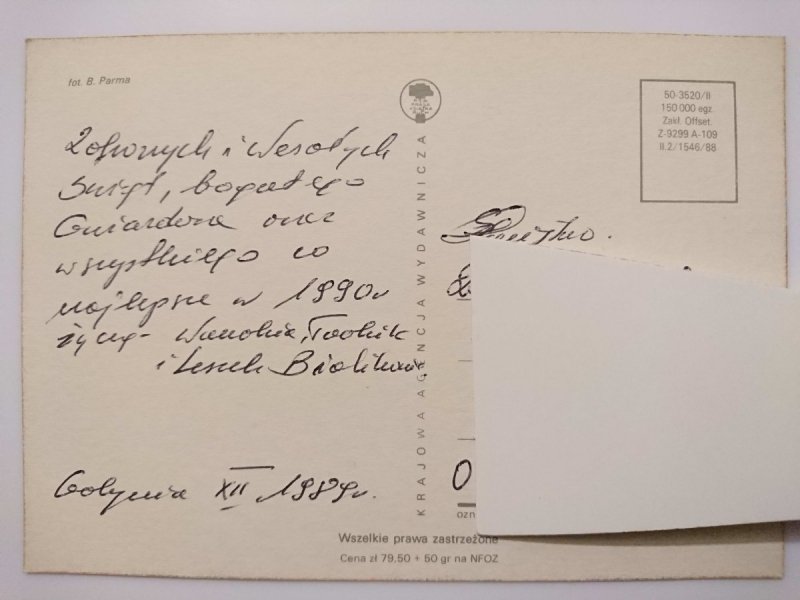 fot. B. Parma
Zdrowych i Wesołych
Świąt, bogatego
Gwiazdora oraz
wszystkiego co
najlepsze w 1990r
życzą - Wandzia,
i Leszek
Gdynia XII 1989r.
KRAJOWA AGENCJA WYDAWNICZA
50-3520/II
150 000 egz.
Zakł. Offset.
Z-9299 A-109
II.2/1546/88
0
ozn
Wszelkie prawa zastrzeżone
Cena zł 79.50 + 50 gr na NFOZ